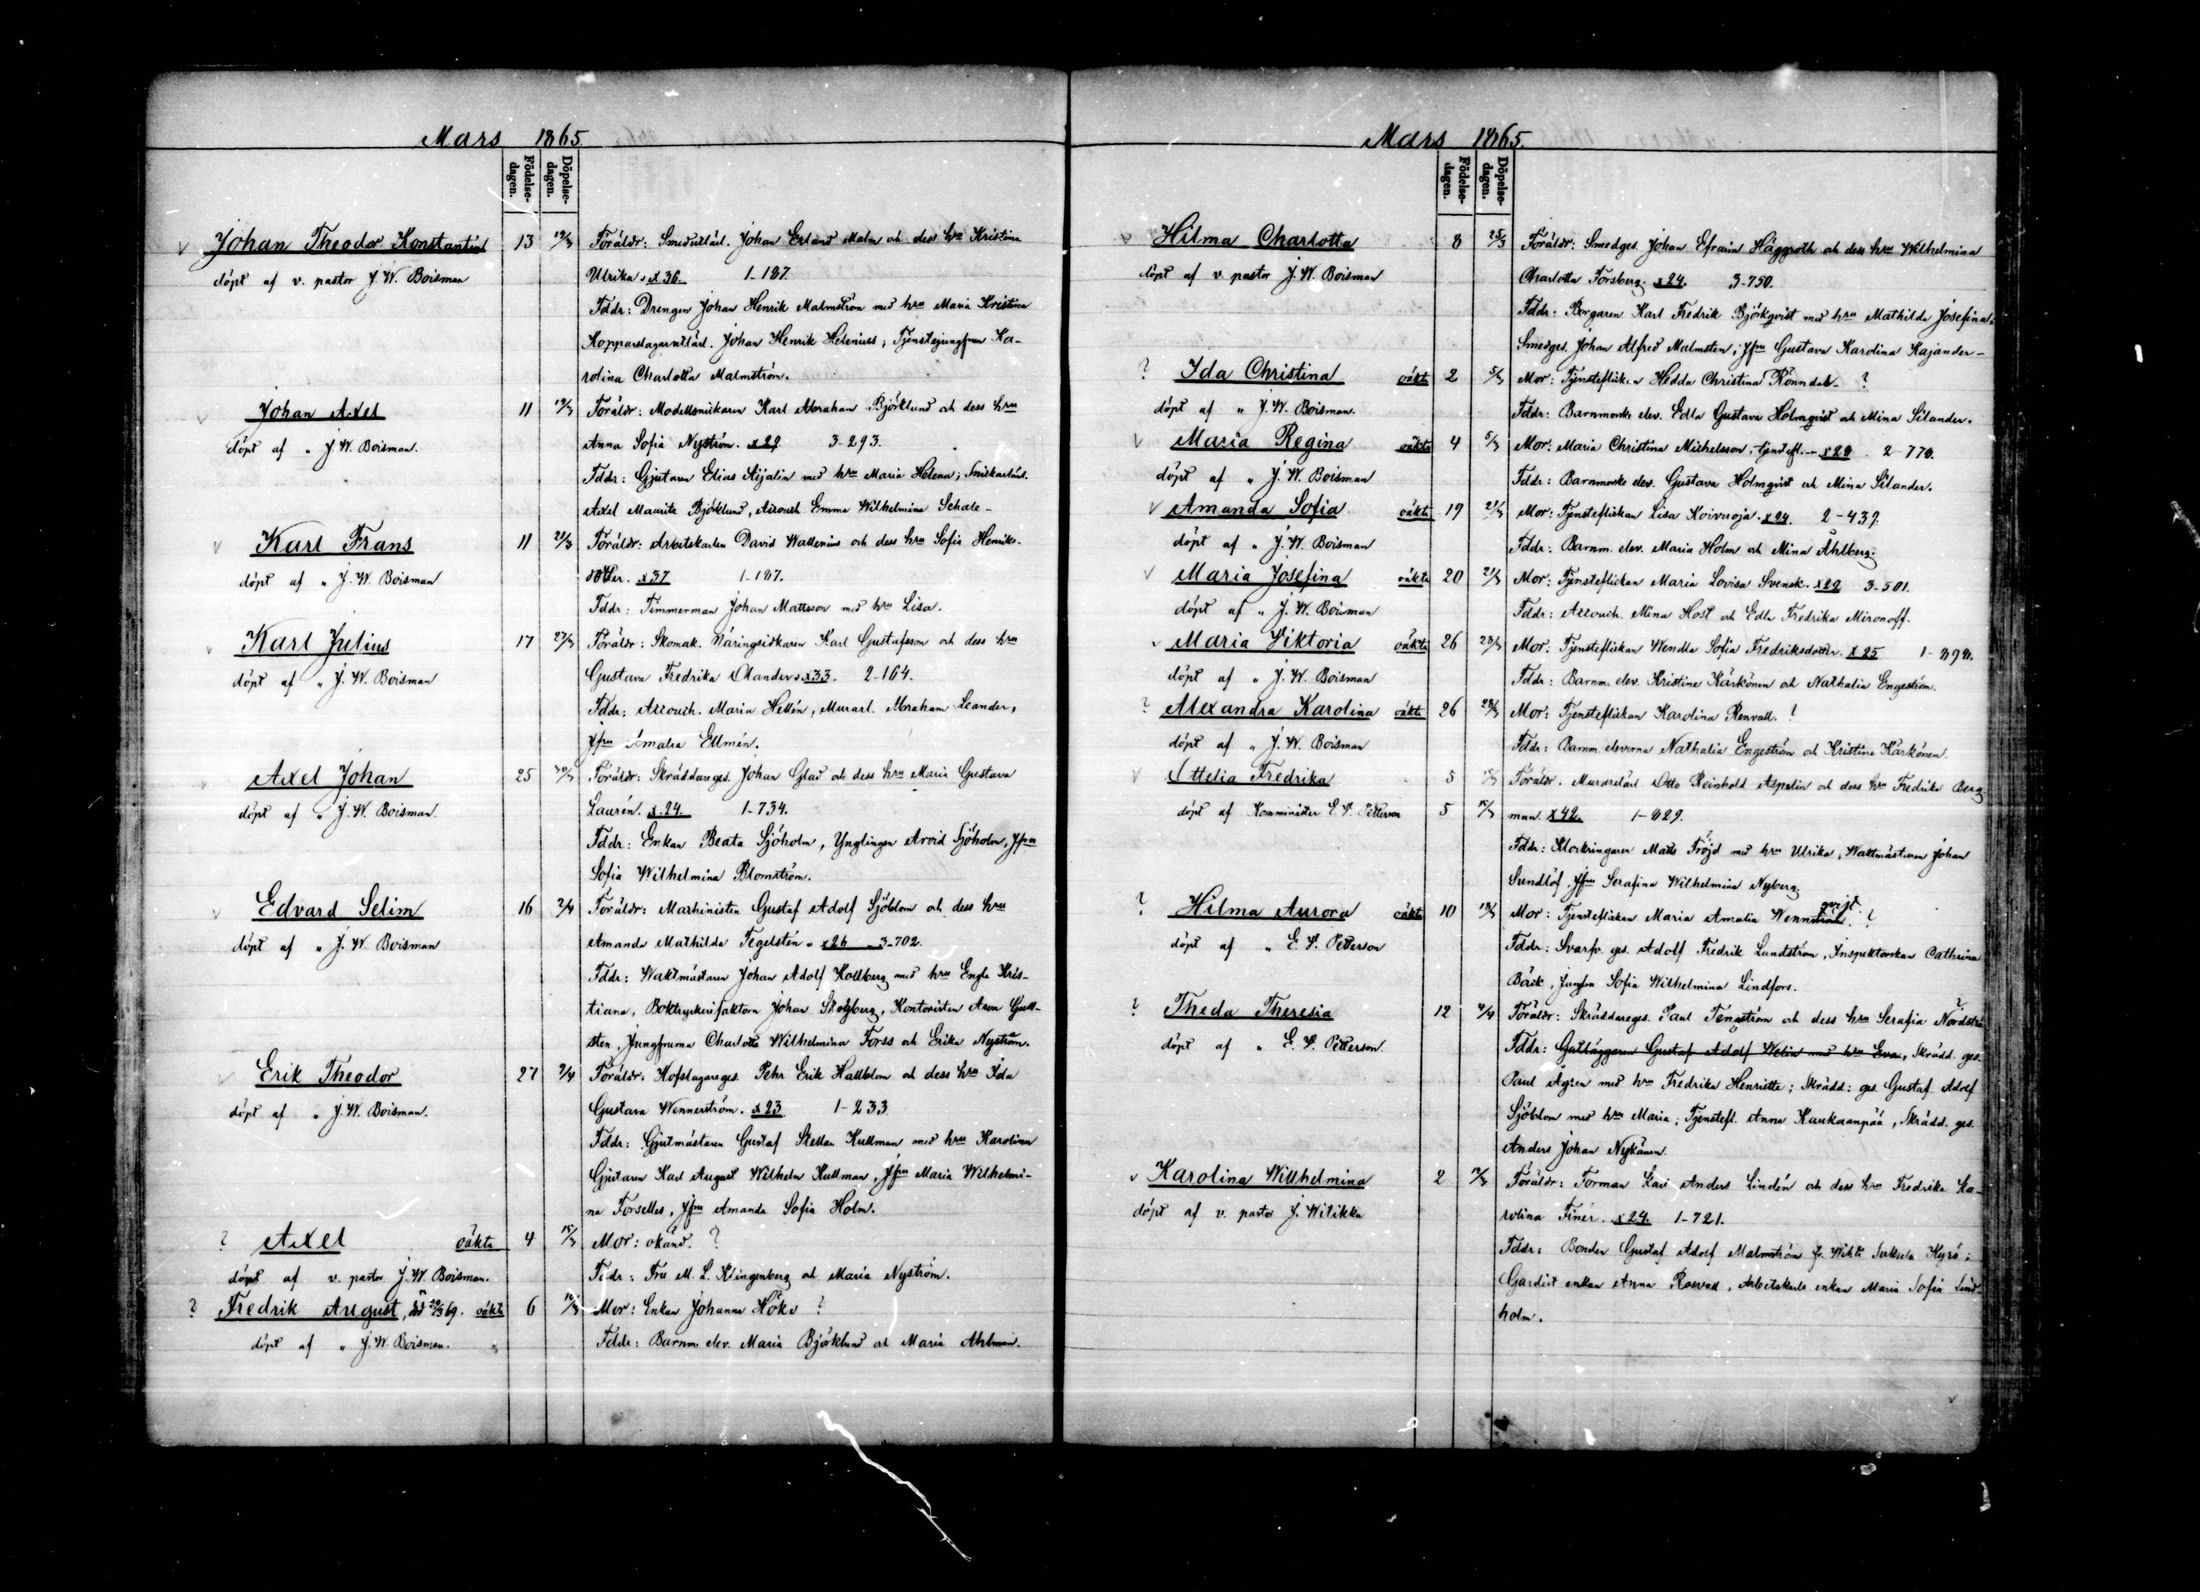 Mars 1865
Födelse-dagen. Döpelse-dagen.
v Johan Theodor Konstantin 13 19/3 Föräldr: Smedutlärl. Johan Erland Malm och dess hru Kristina
döpt af v. pastor J. W. Boisman Ulrika. x 36. 1-187.
Fddr: Drengen Johan Henrik Malmström med hru Maria Kristina
Kopparslagarutlärl. Johan Henrik Helenius; Tjenstejungfrun Ka-
rolina Charlotta Malmström.
v Johan Axel 11 19/3 Föräldr: Modellsnickaren Karl Abraham Björklund och dess hru
döpt af " J. W. Boisman. Anna Sofia Nyström. x 29 3-293.
Fddr: Gjutaren Elias Aijalin med hru Maria Helena; Snickarlärl.
Axel Mauritz Björklund, Accouch. Emma Wilhelmina Schale-
v Karl Frans 11 21/3 Föräldr: Arbetskarlen David Wallenius och dess hru Sofia Henriks-
döpt af " J. W. Boisman dotter. x 37 1-187.
Fddr: Timmerman Johan Mattsson med hru Lisa.
v Karl Julius 17 27/3 Föräldr: Skomak. Näringsidkaren Karl Gustafsson och dess hru
döpt af " J. W. Boisman Gustava Fredrika Olander. x 33. 2-164.
Fddr: Accouch. Maria Hellén, Murarl. Abraham Leander,
Jfru Amalia Ellmén.
v Axel Johan 25 30/3 Föräldr: Skräddareges. Johan Glad och dess hru Maria Gustava
döpt af " J. W. Boisman. Laurén. x 24. 1-734.
Fddr: Enkan Beata Sjöholm, Ynglingen Arvid Sjöholm, Jfru
Sofia Wilhelmina Blomström.
v Edvard Selim 16 2/4 Föräldr: Machinisten Gustaf Adolf Sjöblom och dess hru
döpt af " J. W. Boisman Amanda Mathilda Tegelstén. x 26 3-702.
Fddr: Waktmästaren Johan Adolf Hollberg med hru Engla Kris-
tiana, Boktryckerifaktorn Johan Stolzberg, Kontoristen Aron Gull-
sten, Jungfruma Charlotta Wilhelmina Forss och Erika Nyström.
v Erik Theodor 27 9/4 Föräldr: Hofslagareges. Pehr Erik Hallblom och dess hru Ida
döpt af " J. W. Boisman. Gustava Wennerström. x 23 1-233
Fddr: Gjutmästaren Gustaf Stellan Kullman med hru Karolina
Gjutaren Karl August Wilhelm Kullman, Jfru Maria Wilhelmi-
na Forselles, Jfru Amanda Sofia Holm.
? Axel oäkta 4 15/3 Mor: okänd. ?
döpt af v. pastor J. W. Boisman. Fddr: Fru M. L. Klingenberg och Maria Nyström.
? Fredrik August, död 29/3 69. oäkta 6 16/3 Mor: Enkan Johanna Hök ?
döpt af " J. W. Boisman. Fddr: Barnm. elev. Maria Björklund och Maria Ahlman.
Mars 1865.
Födelse-dagen. Döpelse-dagen.
v Hilma Charlotta 8 25/3 Föräldr: Smedges. Johan Efraim Häggroth och dess hru Wilhelmina
döpt af v. pastor J. W. Boisman Charlotta Forsberg. x 24. 3-750.
Fddr: Borgaren Karl Fredrik Björkqvist med hru Mathilda Josefina;
Smedges. Johan Alfred Malmsten; Jfru Gustava Karolina Kajander-
? Ida Christina oäkta 2 5/3 Mor: Tjensteflickan Hedda Christina Rönndal- ?
döpt af " J. W. Boisman. Fddr: Barnmorske elev. Edla Gustava Holmqvist och Mina Silander.
v Maria Regina oäkta 4 5/3 Mor: Maria Christina Michelsson, tjenstefl.- x 29 2-770.
döpt af " J. W. Boisman Fddr: Barnmorske elev. Gustava Holmqvist och Mina Silander.
v Amanda Sofia oäkta 19 21/3 Mor: Tjensteflickan Lisa Koivuoja. x 24. 2-439.
döpt af " J. W. Boisman Fddr: Barnm. elev. Maria Holm och Mina Åhlberg.
v Maria Josefina oäkta 20 21/3 Mor: Tjensteflickan Maria Lovisa Svensk. x 22 3-501.
döpt af " J. W. Boisman Fddr: Accouch. Mina Host och Edla Fredrika Mironoff.
v Maria Viktoria oäkta 26 28/3 Mor: Tjensteflickan Wendla Sofia Fredriksdotter. x 25 1-898.
döpt af " J. W. Boisman Fddr: Barnm. elev. Kristine Kärkönen och Nathalia Engeström.
? Alexandra Karolina oäkta 26 28/3 Mor: Tjensteflickan Karolina Renvall. ?
döpt af " J. W. Boisman Fddr: Barnm. eleverna Nathalia Engeström och Kristine Kärkönen.
v Ottelia Fredrika 5 15/3 Föräldr. Murarelärl. Otto Reinhold Aspelin och dess hru Fredrika Berg-
döpt af Komminister E. S. Petterson 5 15/3 man. x 42. 1-829.
Fddr: Klockringaren Matts Fröjd med hru Ulrika, Waktmästaren Johan
Sundlöf, Jfru Serafina Wilhelmina Nyberg
? Hilma Aurora oäkta 10 18/3 Mor: Tjensteflickan Maria Amalia Wennström qvist ?
döpt af " E. S. Petterson Fddr: Svarfv. ges. Adolf Fredrik Lundström, Inspektorskan Cathrina
Bäck, Jungfru Sofia Wilhelmina Lindfors.
? Theda Theresia 12 4/4 Föräldr: Skräddareges. Paul Tengström och dess hru Serafia Nordström ?
döpt af " E. S. Petterson. Fddr: Gatläggaren Gustaf Adolf Welin med hru Eva, Skrädd. ges.
Paul Ågren med hru Fredrika Henriette; Skrädd: ges. Gustaf Adolf
Sjöblom med hru Maria; Tjenstefl. Anna Kaukaanpää, Skrädd. ges.
Anders Johan Nykänen.
v Karolina Wilhelmina 2 12/3 Föräldr: Forman Karl Anders Lindén och dess hru Fredrika Ka-
döpt af v. pastor J. Wilikka rolina Finér. x 24. 1-721.
Fddr: Bonden Gustaf Adolf Malmström fr. Wihti Kyrö;
Gardist enkan Anna Roswall, Arbetskarls enkan Maria Sofia Lind-
holm.